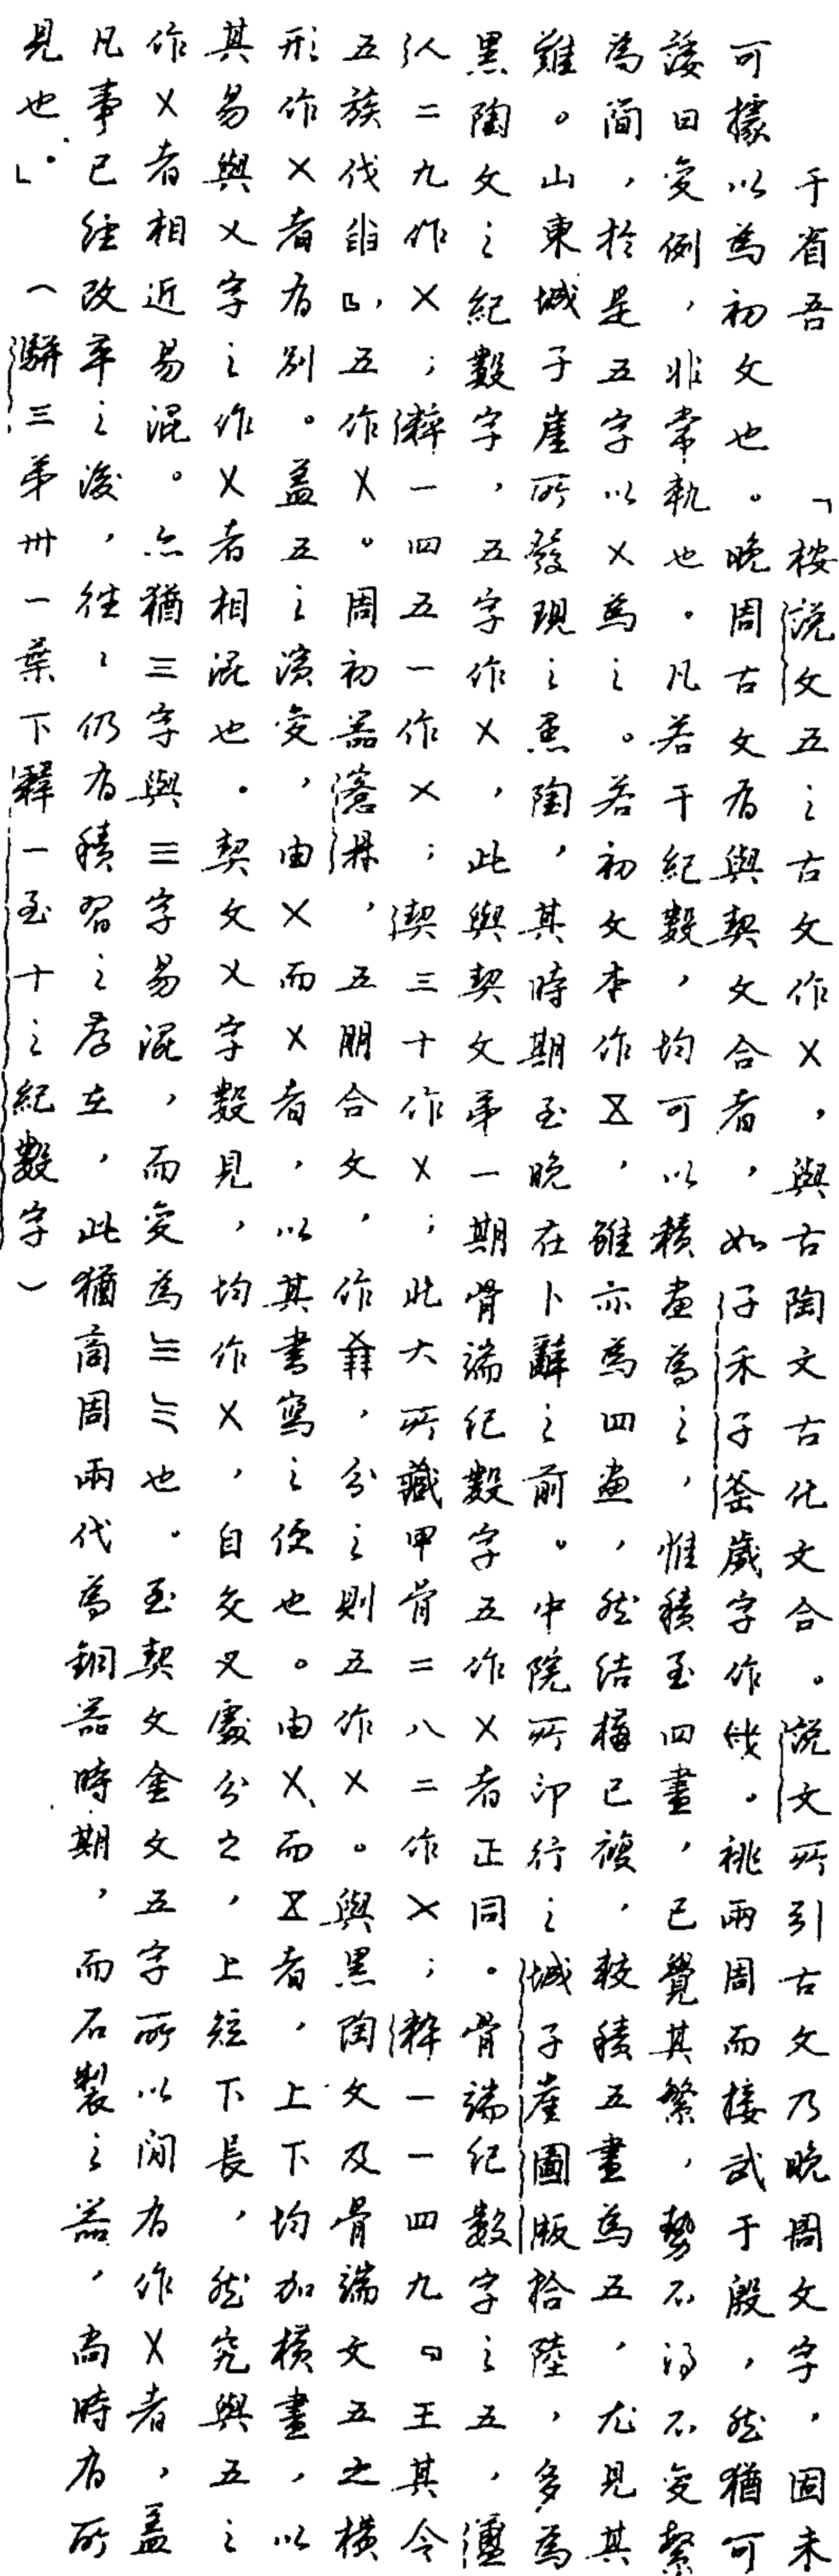 于省吾　「桉说文五之古文作㐅，與古陶文古化文合。说文所引古文乃晚周文字，固未
可據以為初文也。晚周古文有與契文合者，如子禾子釜歲字作。祧兩周而接武于殷，然猶可
諉曰变例，非常軌也。凡若干紀數，均可以積畫為之，惟積至四畫，已覺其繁，勢不得不变繁
為简，於是五字以㐅為之。若初文本作𠄡，雖亦為四畫，然结構已複，較積五畫為五，尤見其
難。山東城子崖所發現之黑陶，其時期至晚在卜辭之前。中院所印行之城子崖圖版拾陸，多為
黑陶文之紀數字，五字作㐅，此與契文苐一期骨端纪數字五作㐅者正同。骨端纪数字之五，
二九作㐅；粹一四五一作㐅；契三十作㐅；此大所藏甲骨二八二作㐅；粹一一四九『王其令
五族伐』，五作㐅。周初器，五朋合文，作，分之則五作㐅。與黑陶文及骨端文五之橫
形作㐅者有别。盖五之演变，由㐅而㐅者，以其書寫之便也。由㐅而𠄡者，上下均加橫畫，以
其易與乂字之作乂者相混也。契文乂字數見，均作乂，自交叉處分之，上短下長，然究與五之
作㐅者相近易混。亦猶三字與亖字易混，而变為也。至契文金文五字所以间有作㐅者，盖
凡事已经改革之後，往〻仍有積習之存在，此猶商周兩代為銅器時期，而石製之器，尚時有所
見也。」（駢三苐卅一葉下釋一至十之紀數字）